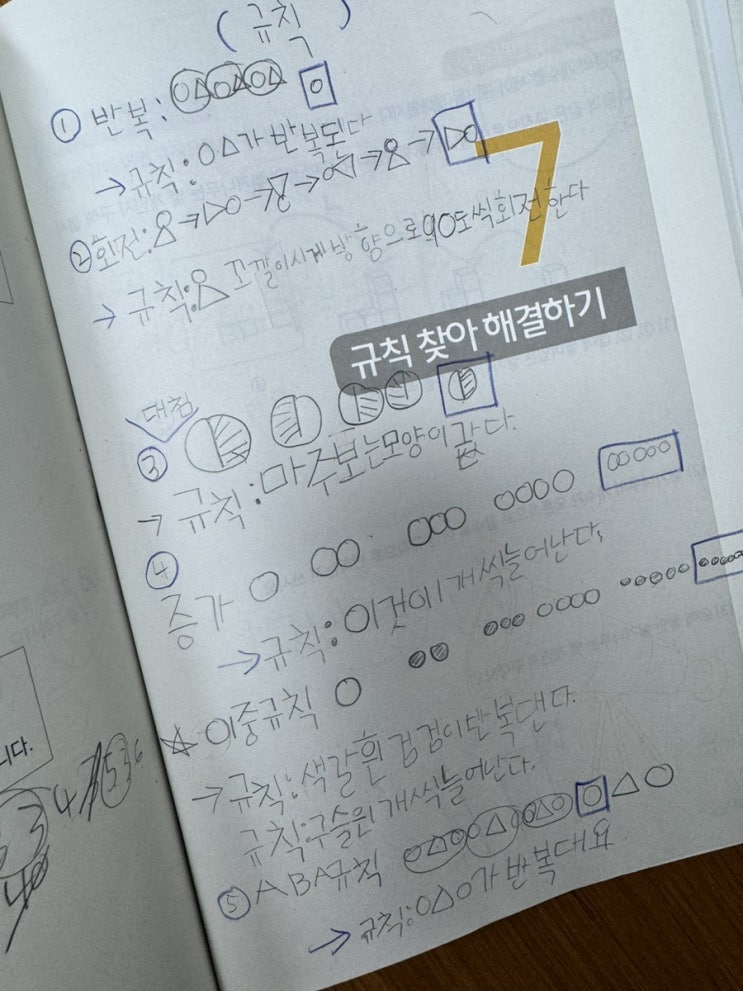 ( 규칙 )
① 반복: ○△○△○△ ○
→ 규칙: ○△가 반복된다
② 회전:
→ 규칙: 꼬깔이 시계 방향으로 90도씩 회전한다
7
규칙 찾아 해결하기
대칭
③
→ 규칙: 마주보는 모양이 같다.
④
증가 ○ ○○ ○○○ ○○○○ ○○○○○
→ 규칙: 이것이 1개씩 늘어난다.
☆ 이중규칙 ○ ●● ●●● ○○○○
→ 규칙: 색갈 흰 검검이 반복댄다.
규칙: 구슬은 1개씩 늘어난다.
⑤ ABA규칙 ○△○○△○○△○ ○ △ ○
→ 규칙: ○△○가 반복대요
니다.